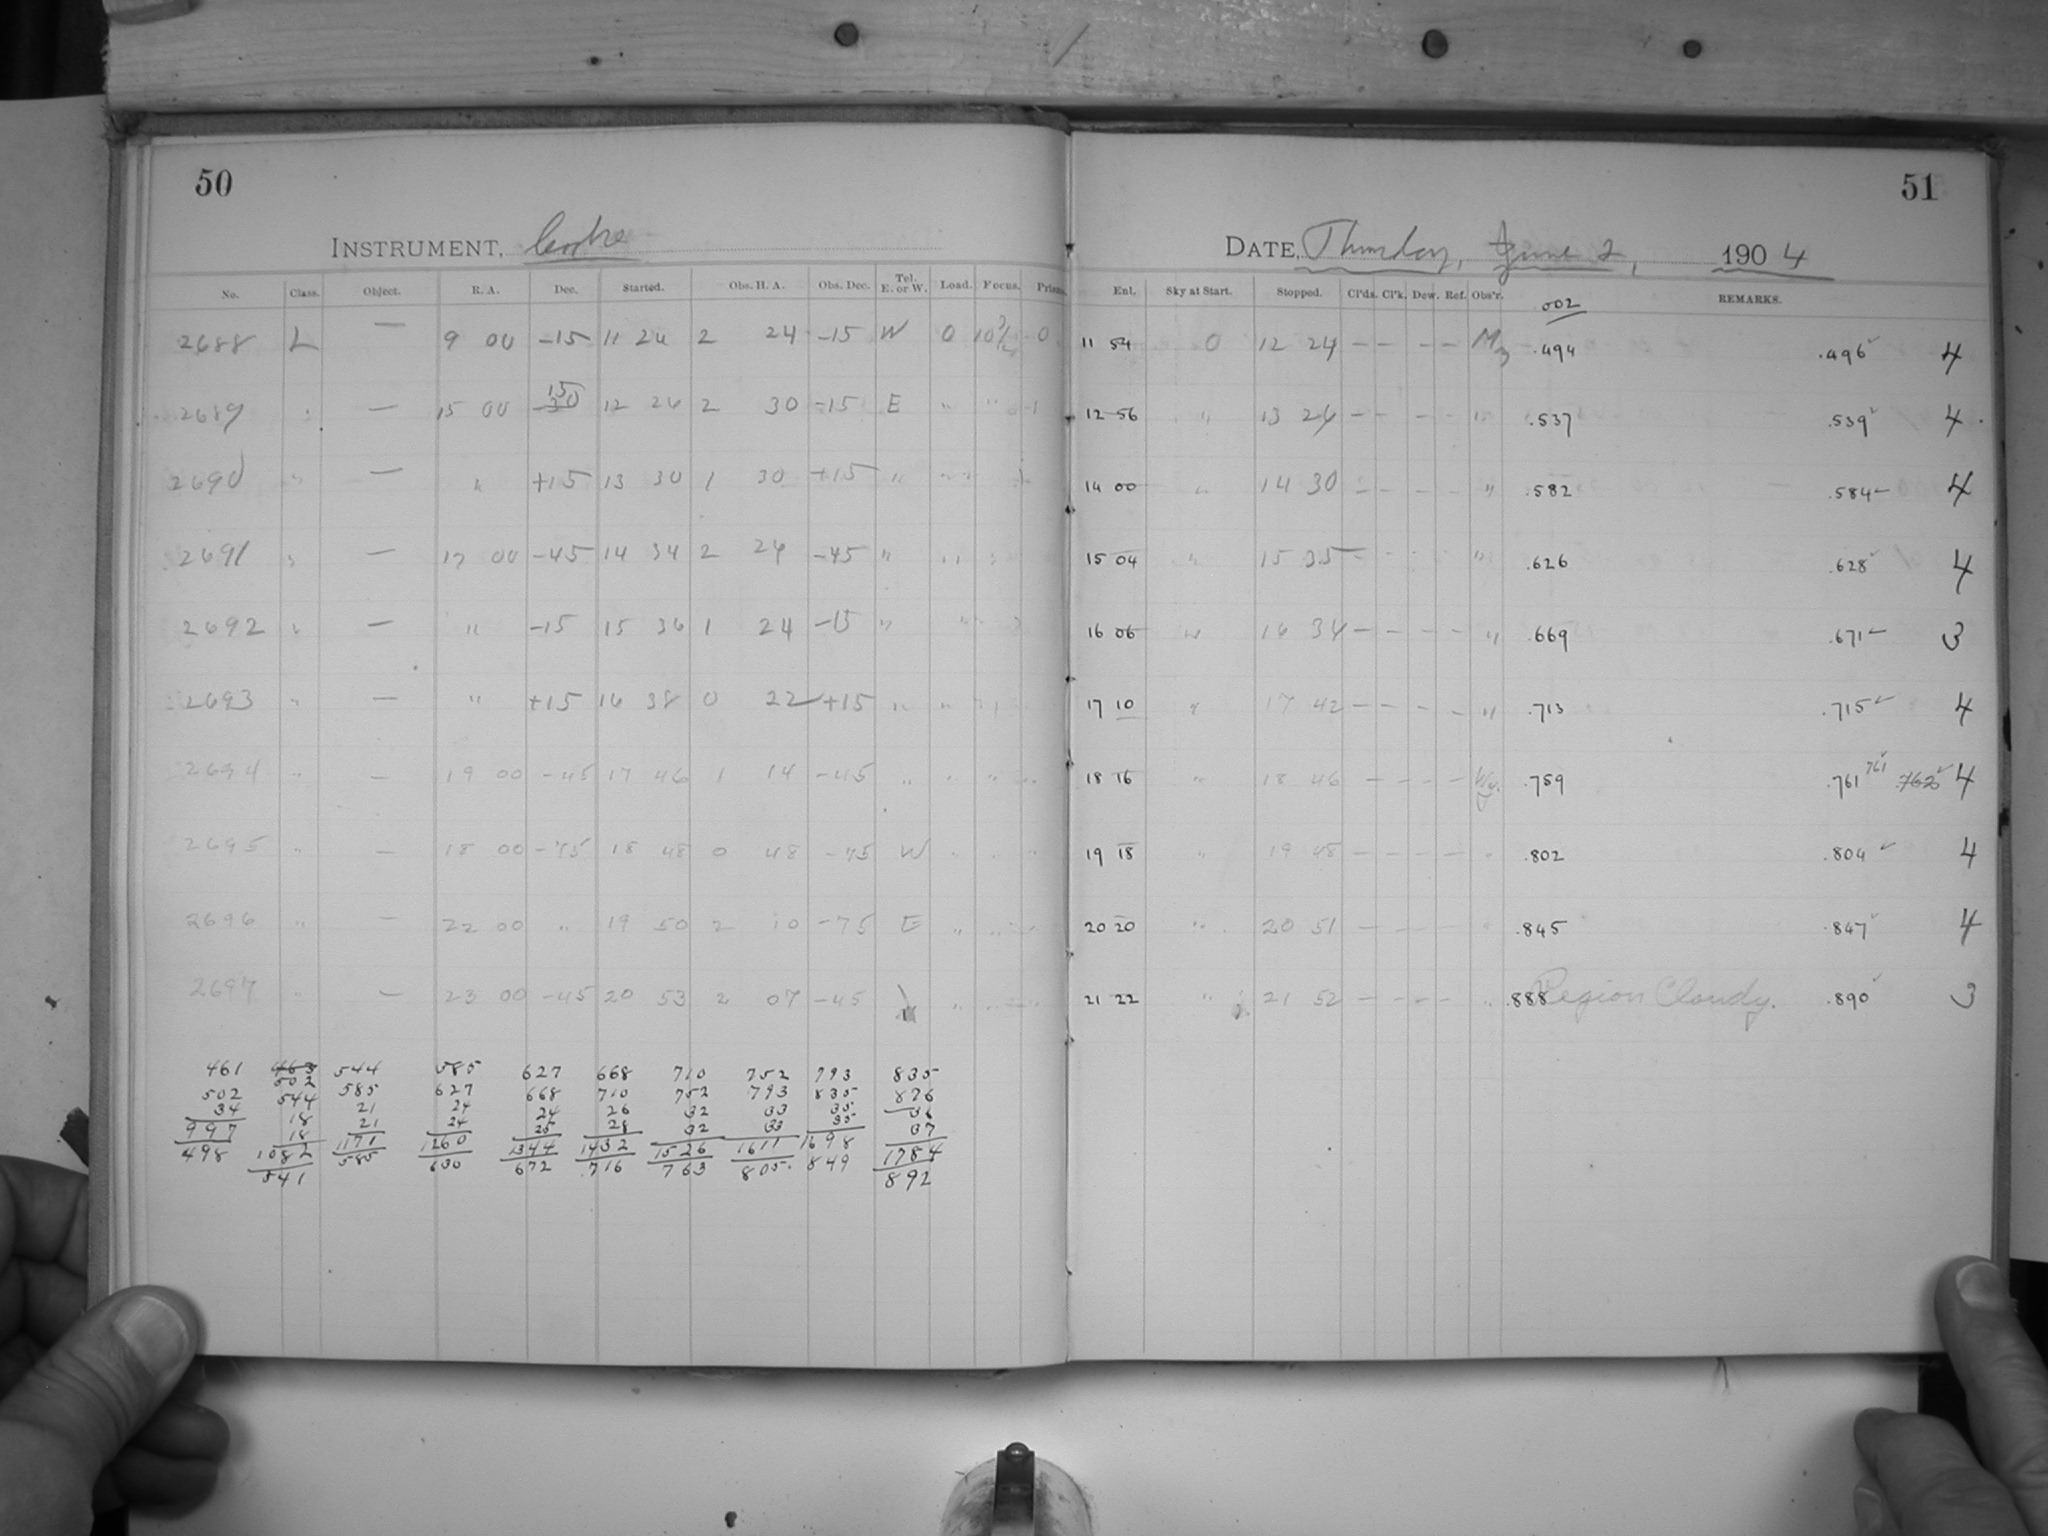 50
INSTRUMENT, Cooke
No. Class. Object. R. A. Dec. Started. Obs. H. A. Obs. Dec. Tel. E. or W. Load. Focus. Prism.
2688 L — 9 00 -15 11 24 2 24 -15 W 0 0
2689 " — 15 00 30 15 12 26 2 30 -15 E " "
2690 " — " +15 13 30 1 30 +15 " " "
2691 " — 17 00 -45 14 34 2 26 -45 " "
2692 " — " -15 15 36 1 24 -15 " "
2693 " — " +15 16 38 0 22 +15 " "
2694 " — 19 00 -45 17 46 1 14 -45 " " " "
2695 " — 18 00 -75 18 48 0 48 -75 W " " "
2696 " — 22 00 " 19 50 2 10 -75 E " " "
2697 " — 23 00 -45 20 53 2 07 -45 " " "
461 463 544 585 627 668 710 752 793 835
502 502 585 627 668 710 752 793 835 876
34 544 21 24 24 26 32 33 35 36
997 18 21 24 25 28 32 33 35 37
498 18 1171 1260 1344 1432 1526 1611 1698 1784
1082 585 630 672 716 763 805. 849 892
541
51
DATE, Thursday, June 2, 1904
Ent. Sky at Start. Stopped. Cl'ds. Cl'k. Dew. Ref. Obs'r. REMARKS.
.002
11 54 0 12 24 — — — — .494 .496 4
12 56 " 13 26 — — — — " .537 .539 4
14 00 " 14 30 — — — — " .582 .584 4
15 04 " 15 35 — — — — " .626 .628 4
16 06 " 16 34 — — — — " .669 .671 3
17 10 " 17 42 — — — — " .713 .715 4
18 16 " 18 46 — — — — .759 .761 761 .762 4
19 18 " 19 48 — — — — " .802 .804 4
20 20 " 20 51 — — — — " .845 .847 4
21 22 " 21 52 — — — — " .888 Region Cloudy. .890 3